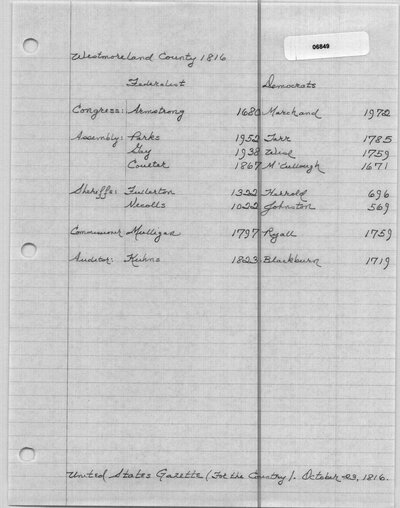 06849
Westmoreland County 1816
Federalist Democrats
Congress: Armstrong 1680 Marchand 1972
Assembly: Parks 1952 Tarr 1785
Gay 1938 Weid 1759
Coulter 1867 M'Cullough 1671
Sheriffs: Fullerton 1322 Harrold 696
Necolls 1022 Johnston 569
Commissioner Mulligan 1797 Ryall 1759
Auditor: Kuhns 1823 Blackburn 1719
United States Gazette (For the Country). October 23, 1816.